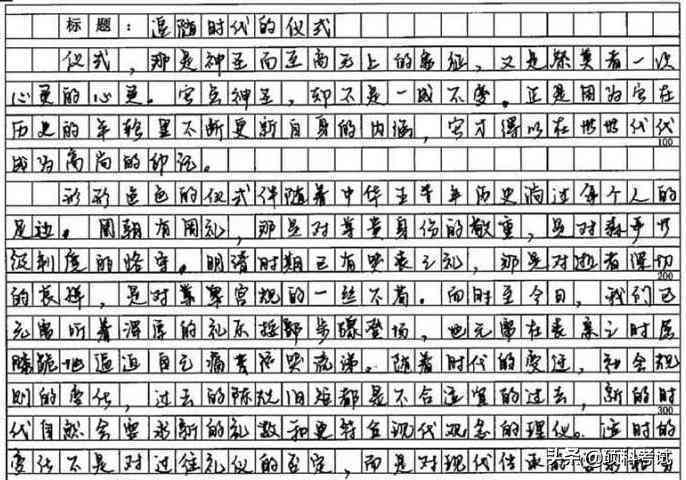 标题：追随时代的仪式
仪式，那是神圣而至高无上的象征，又是祭奠者一次
心灵的心灵。它虽神圣，却不是一成不变。正是因为它在
历史的年轮里不断更新自身的内涵，它才得以在世世代代
成为高尚的印记。
100
形形色色的仪式伴随着中华五千年历史淌过每个人的
足边。周朝有周礼，那是对尊贵身份的敬重，是对森严
制度的恪守。明清时期已有哭丧之礼，那是对逝者深切
200
的哀悼，是对繁冗官规的一丝不苟。而时至今日，我们已
无需听着浑厚的礼乐按部步骤登场，也无需在丧亲之时屈
膝跪地逼迫自己痛哭流涕。随着时代的变迁，社会规
则的变化，过去的陈规旧俗都是不合适宜的过去，新的时
300
代自然会要求新的礼数和更符合现代观念的理仪。这时的
变化不是对过往礼仪的否定，而是对现代传承的
头条@硕科考试